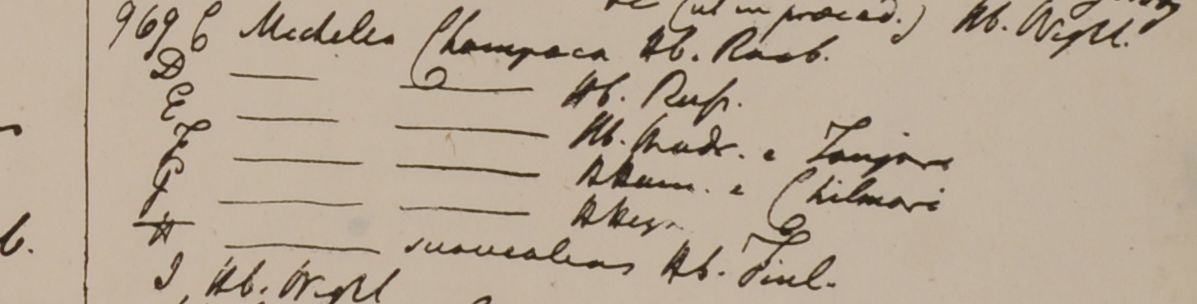 &c (ut in præced.) Hb. Wight.
969 C Michelia Champaca Hb. Roxb.
D — — Hb. Russ.
E — — Hb. Madr. e Tanjore
F — — HHam. e Chilmari
G — — HHeyn.
H — suaveolens Hb. Finl.
I Hb. Wight